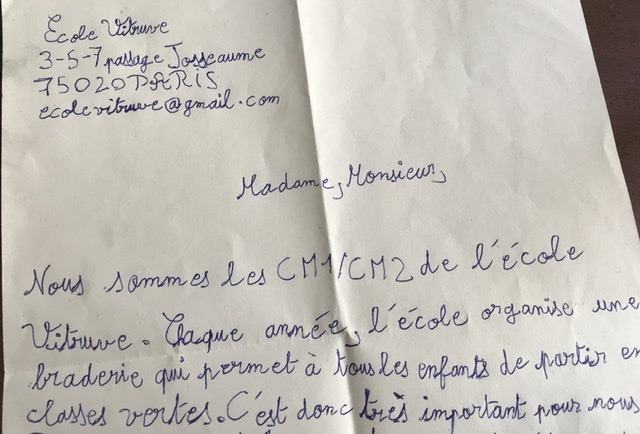 École Vitruve
3-5-7 passage Josseaume
75020 PARIS
ecolevitruve@gmail.com
Madame, Monsieur,
Nous sommes les CM1/CM2 de l'école
Vitruve. Chaque année, l'école organise une
braderie qui permet à tous les enfants de partir en
classes vertes. C'est donc très important pour nous